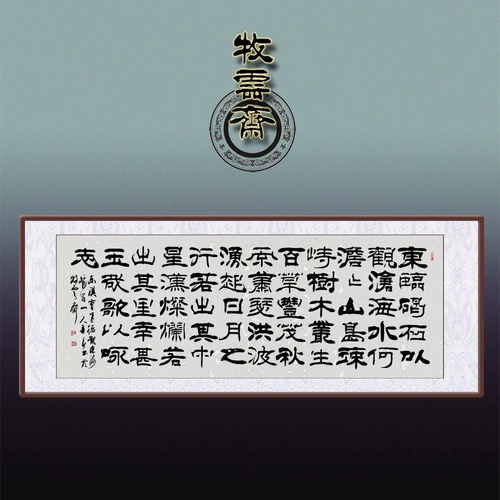 牧
齋
東臨碣石以
觀滄海水何
澹澹山島竦
峙樹木叢生
百草豐茂秋
風蕭瑟洪波
涌起日月之
行若出其中
星漢燦爛若
出其里幸甚
至哉歌以咏
志